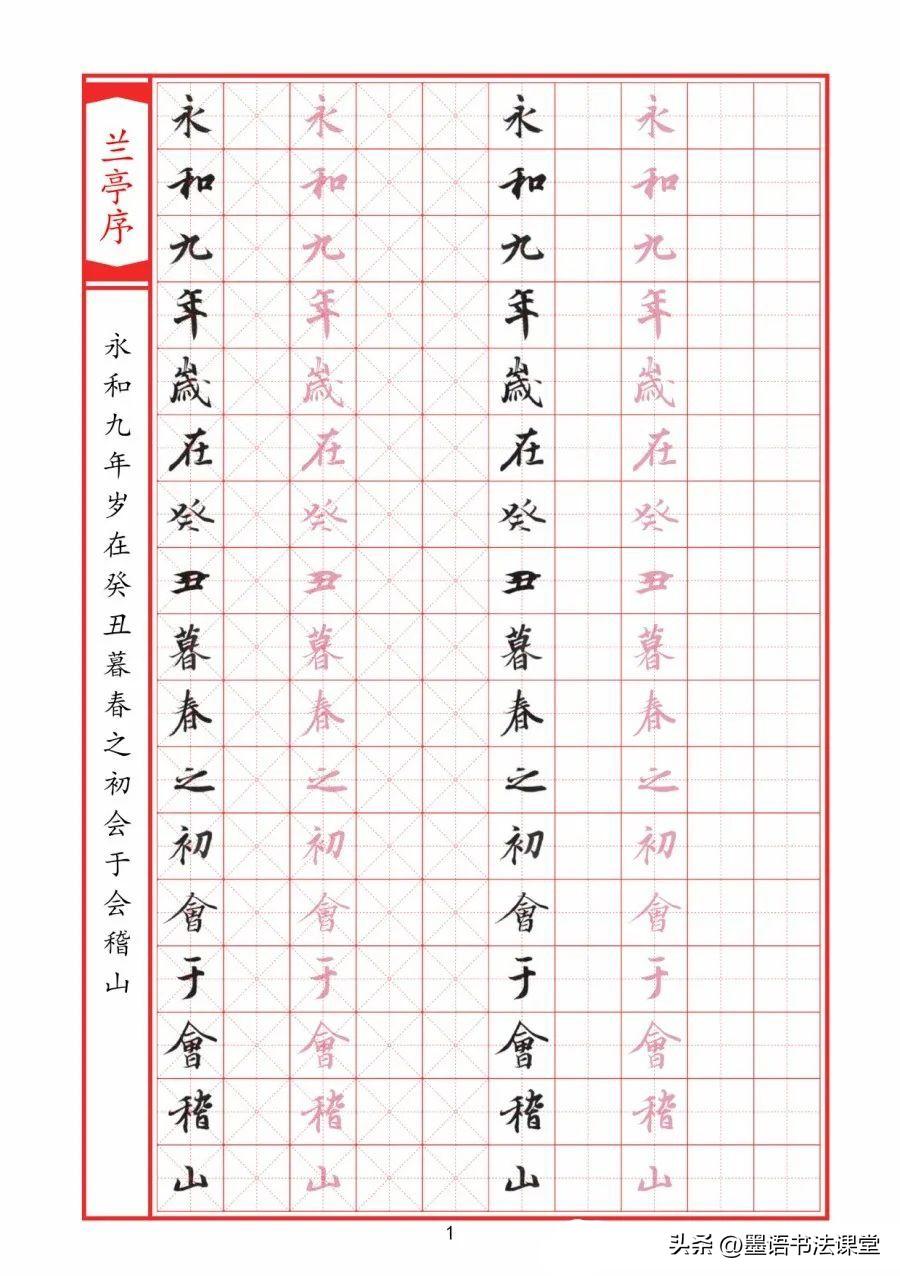 兰亭序
永和九年岁在癸丑暮春之初会于会稽山
永和九年嵗在癸丑暮春之初會于會稽山
永和九年嵗在癸丑暮春之初會于會稽山
永和九年嵗在癸丑暮春之初會于會稽山
永和九年嵗在癸丑暮春之初會于會稽山
1
头条 @墨语书法课堂